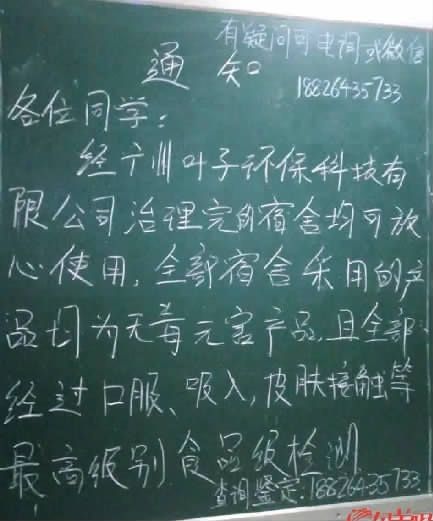 有疑问可电询或微信
18826435733
通知
各位同学:
经广州叶子环保科技有
限公司治理完的宿舍均可放
心使用,全部宿舍采用的产
品均为无毒无害产品,且全部
经过口服、吸入,皮肤接触等
最高级别食品级检测
查询鉴定:18826435733